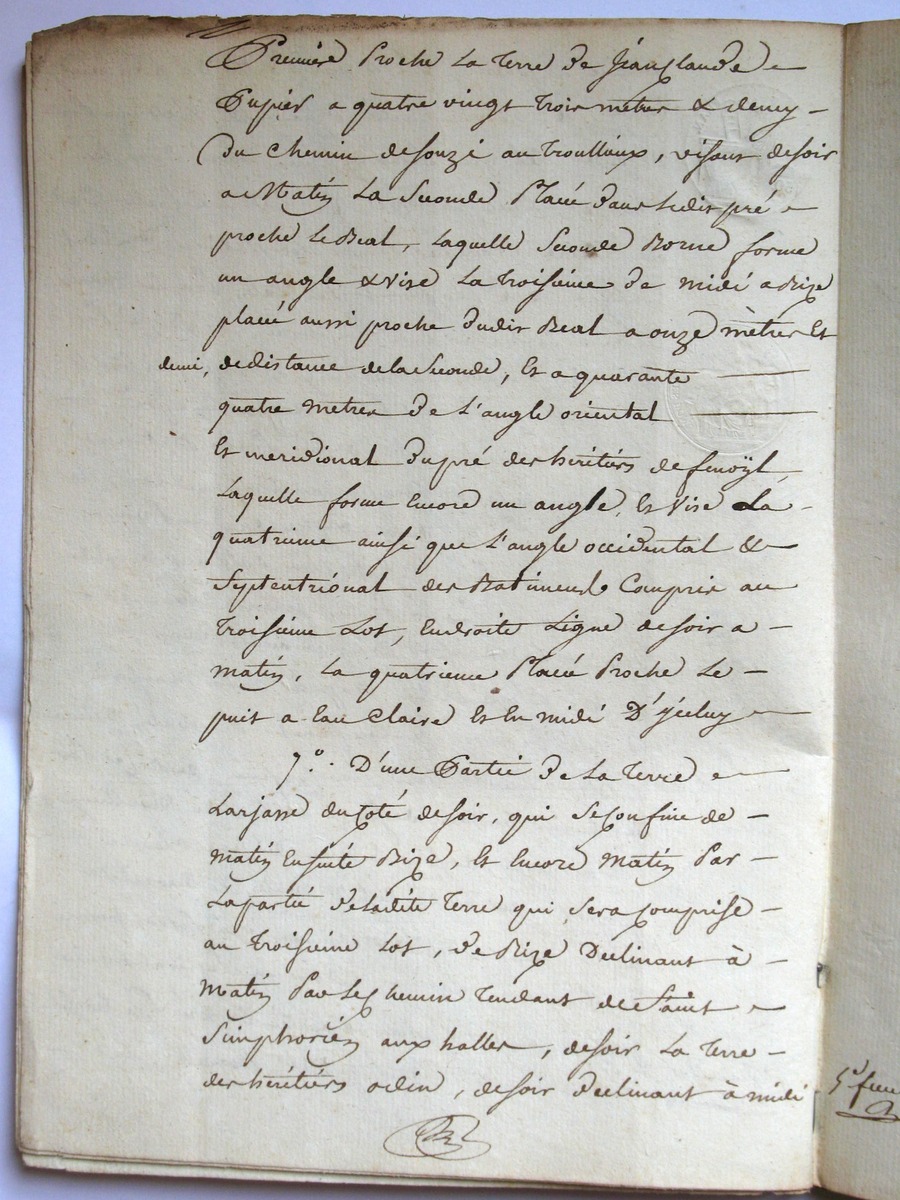 Premiere Proche La Terre de Jean Claude
Pupier a quatre vingt trois mètres & demy
Du Chemin de Souzi au Troullioux, visant de soir
a Matin La Seconde Placée dans Ledit pré
proche Le Beal, Laquelle Seconde Borne forme
un angle & vise La troisieme de midi a Bize
placée aussi proche dudit Beal a onze mètres Et
demi, de distance de la Seconde, Et a quarante
quatre metres de L'angle oriental
Et meridional du pré des héritiers de fenoÿl
Laquelle forme Encore un angle, Et Vise La
quatrieme ainsi que L'angle occidental &
Septentrional des Batiments Compris au
Troisieme Lot, En droite Ligne de soir a
matin, La quatrieme Placée Proche Le
puit a Eau Claire Et En midi D'ycelluy
7.° D'une Partie de La Terre
Larjasse du Coté de soir, qui Se Confine de
matin Ensuite Bize, Et Encore Matin Par
La partie de Ladite Terre qui Sera Comprise
au Troisieme Lot, de Bize Déclinant à
Matin Par Le Chemin Tendant de Saint
Simphorien aux halles, de soir La Terre
des héritiers odin, de soir declinant à midi